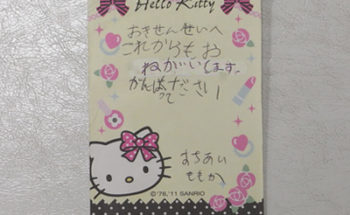 Hello Kitty
おきせんせいへ
これからもお
ねがいします。
がんばって
ください
すちあい
ももか
©'76,'11 SANRIO